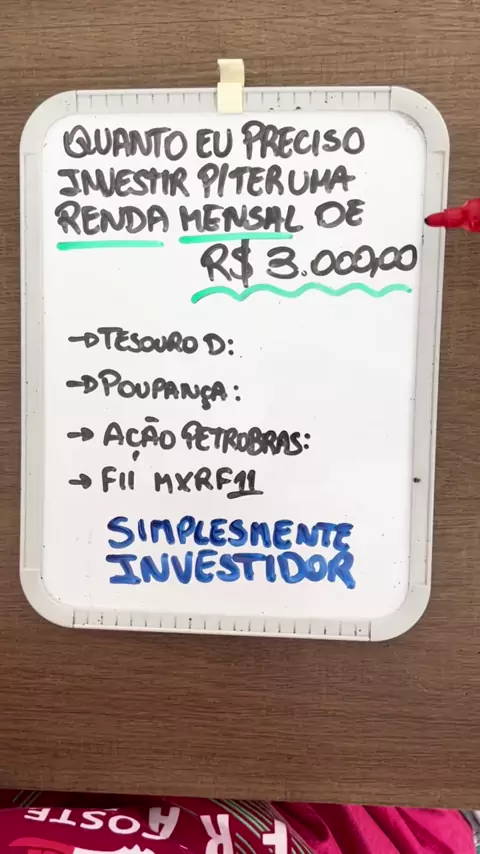 QUANTO EU PRECISO
INVESTIR P/TER UMA
RENDA MENSAL DE
R$ 3.000,00
→TESOURO D:
→POUPANÇA:
→ AÇÃO PETROBRAS:
→ FII MXRF11
SIMPLESMENTE
INVESTIDOR
FOSTE